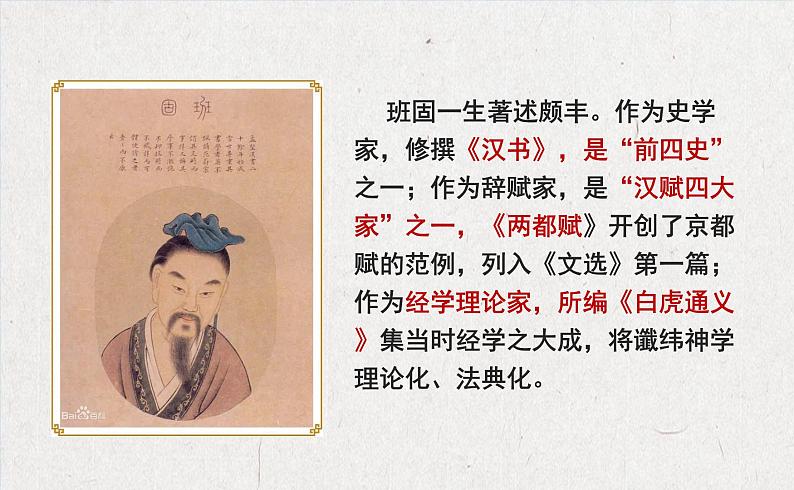 班固
班固一生著述颇丰。作为史学
家，修撰《汉书》，是“前四史”
之一；作为辞赋家，是“汉赋四大
家”之一，《两都赋》开创了京都
赋的范例，列入《文选》第一篇；
作为经学理论家，所编《白虎通义
》集当时经学之大成，将谶纬神学
理论化、法典化。
Bai百科